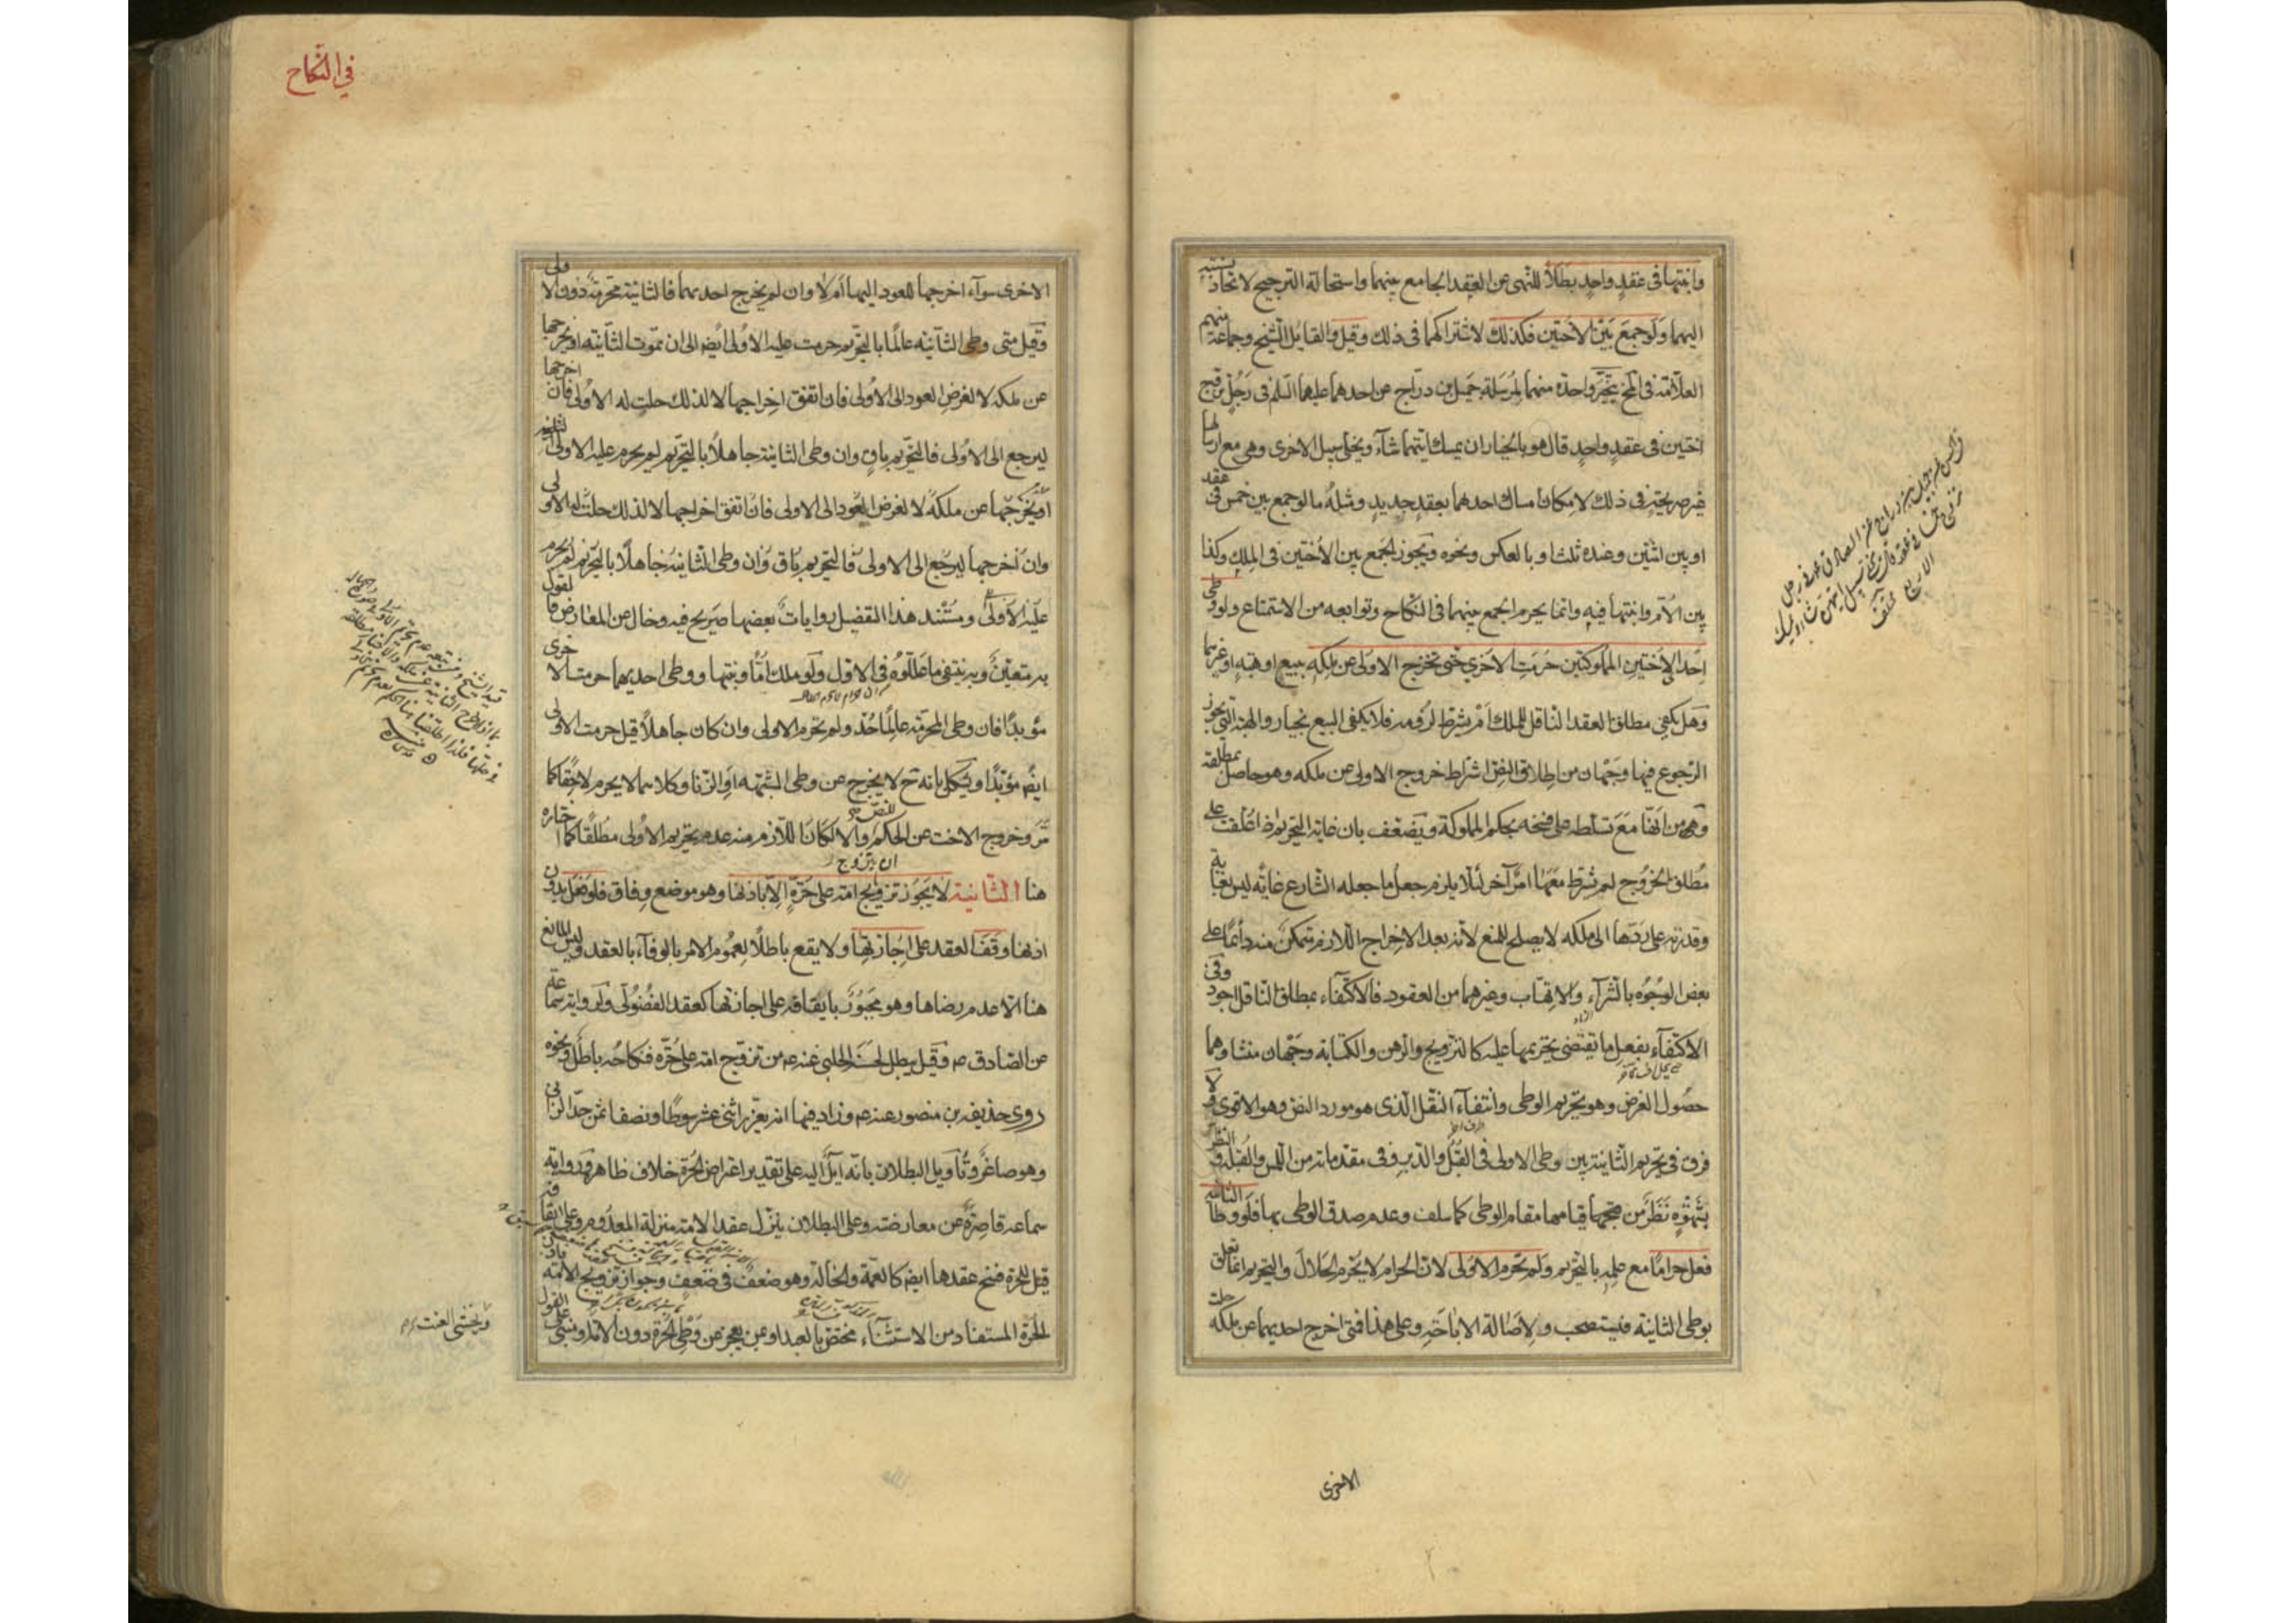 وابنتها فى عقدٍ واحدٍ بطلا للنهى عن العقد الجامع بينهما واستحالة الترجيح لاتحاد نسبته
اليهما ولو جمع بين الأختين فكذلك لاشتراكهما فى ذلك وقيل والقايل الشيخ وجماعة منهم
العلامة فى المخ يتخير واحدة منهما لمرسلة جميل بن دراج عن احدهما عليهما السلم فى رجل تزوج
اختين فى عقدٍ واحدٍ قال هو بالخيار ان يمسك ايتهما شاء ويخلى سبيل الاخرى وهى مع ارسالها
غير صريحة فى ذلك لامكان امساك احدهما بعقد جديد ومثله ما لو جمع بين خمس فى عقد
او بين اثنتين وعنده ثلث او بالعكس ونحوه ويجوز الجمع بين الأختين فى الملك وكذا
بين الأم وابنتها فيه وانما يحرم الجمع بينهما فى النكاح وتوابعه من الاستمتاع ولو وطى
احدى الأختين المملوكتين حرمت الاخرى حتى تخرج الاولى عن ملكه ببيع او هبة او غيرهما
وهل يكفى مطلق العقد الناقل للملك ام يشترط لزومه فلا يكفى البيع بخيار والهبة التى يجوز
الرجوع فيها وجهان من اطلاق النص اشتراط خروج الاولى عن ملكه وهو حاصل بمطلقه
ومن انها مع تسلطه على فسخه بحكم المملوكة ويضعف بان غاية التحريم اذا علقت على
مطلق الخروج لم يشترط معها امر آخر لئلا يلزم جعل ما جعله الشارع غاية ليس بغاية
وقدرته على ردها الى ملكه لا يصلح للمنع لأنه بعد الاخراج اللازم متمكن منه دائما على
بعض الوجوه بالشراء والاتهاب وغيرهما من العقود فالاكتفاء بمطلق الناقل اجود وفى
الاكتفاء بفعل ما يقتضى تحريمها عليه كالتزويج والرهن والكتابة وجهان منشاؤهما
حصول الغرض وهو تحريم الوطى وانتفاء النقل الذى هو مورد النص وهو الاقوى ولا
فرق فى تحريم الثانية بين وطى الاولى فى القبل والدبر وفى مقدماته من اللمس والقبلة والنظر
بشهوة نظر من قيامها مقام الوطى كما سلف وعدم صدق الوطى بها فلو وطا الثانية
فعل حراما مع علمه بالتحريم ولم تحرم الاولى لان الحرام لا يحرم الحلال والتحريم انما تعلق
بوطى الثانية فيستصحب ولاصالة الاباحة وعلى هذا فمتى اخرج احديهما عن ملكه حلت
الاخرى
فى النكاح
الاخرى سواء اخرجها للعود اليها ام لا وان لم يخرج احديهما فالثانية محرمة دون الاولى
وقيل متى وطى الثانية عالما بالتحريم حرمت عليه الاولى ايضا الى ان تموت الثانية او يخرجها
عن ملكه لا لغرض العود الى الاولى فان اتفق اخراجها لا لذلك حلت له الاولى فان اخرجها
ليرجع الى الاولى فالتحريم باق وان وطى الثانية جاهلا بالتحريم لم يحرم عليه الاولى
او يخرجها عن ملكه لا لغرض العود الى الاولى فان اتفق اخراجها لا لذلك حلت له الاولى
وان اخرجها ليرجع الى الاولى فالتحريم باق وان وطى الثانية جاهلا بالتحريم لم يحرم
عليه الاولى ومستند هذا التفصيل روايات بعضها صريح فيه وخال من المعارض فالقول
به متعين وبه ينتفى ما عللوه فى الاول ولو ملك اما وبنتها ووطى احديهما حرمت الاخرى
مؤبدا فان وطى المحرمة عالما حد ولم تحرم الاولى وان كان جاهلا قيل حرمت الاولى
ايضا مؤبدا ويشكل بانه ح لا يخرج عن وطى الشبهة او الزنا وكلاهما لا يحرم لاحقا كما
مر وخروج الاخت عن الحكم للنص والا لكان اللازم منه عدم تحريم الاولى مطلقا كما اختاره
هنا الثانية لا يجوز ان يتزوج امة على حرة الا باذنها وهو موضع وفاق فلو فعل بدون
اذنها وقف العقد على اجازتها ولا يقع باطلا لعموم الامر بالوفاء بالعقد وليس المانع
هنا الا عدم رضاها وهو مجبور بايقافه على اجازتها كعقد الفضولى ولرواية سماعة
عن الصادق ع وقيل يبطل لحسنة الحلبى عنه ع من تزوج امة على حرة فنكاحه باطل ونحوه
روى حذيفة بن منصور عنه ع وزاد فيها انه يعزر اثنى عشر سوطا ونصفا ثمن حد الزانى
وهو صاغر وتأويل البطلان بانه آيل اليه على تقدير اعتراض الحرة خلاف ظاهر ورواية
سماعة قاصرة عن معارضته وعلى البطلان ينزل عقد الامة منزلة المعدوم وعلى ايقافه
قيل للحرة فسخ عقدها ايضا كالعمة والخالة وهو ضعف فى ضعف وجواز تزويج الامة باذن
الحرة المستفاد من الاستثناء مختص بالعبد او بمن يعجز عن وطى الحرة دون الامة ويبتنى على القول
ويخشى العنت